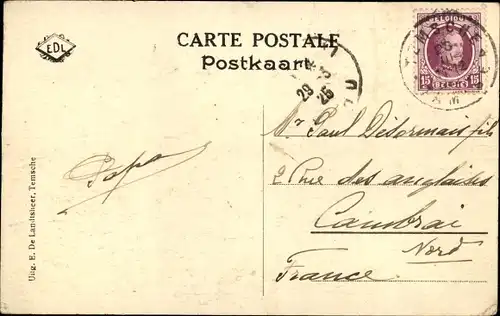 EDL
CARTE POSTALE
Postkaart
BELGIQUE
15 15
BELGIE
29 25
Mr Paul Desormais fils
2 Rue des anglaises
Cambrai
Nord
France
Papa
Uitg. E. De Landtsheer, Temsche